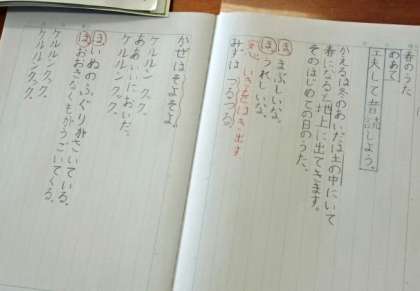 春のうた
めあて
工夫して音読しよう。
かえるは冬のあいだは土の中にいて
春になると地上に出てきます。
そのはじめての日のうた。
ほ まぶしいな。
ほ うれしいな。
みずは つるつる。
かぜはそよそよ。
ケルルン クック。
ああいいにおいだ。
ケルルン クック。
ほ いぬのふぐりがさいている。
ほ おおきなくもがうごいてくる。
ケルルン クック。
ケルルン クック。